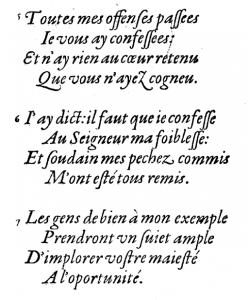 5 Toutes mes offenſes paſſees
Ie vous ay confeſſees:
Et n'ay rien au cœur retenu
Que vous n'ayeZ cogneu.
6 I'ay dict: il faut que ie confeſſe
Au Seigneur ma foibleſſe:
Et ſoudain mes pechez commis
M'ont eſté tous remis.
7 Les gens de bien à mon exemple
Prendront vn ſuiet ample
D'implorer voſtre maieſté
A l'oportunité.